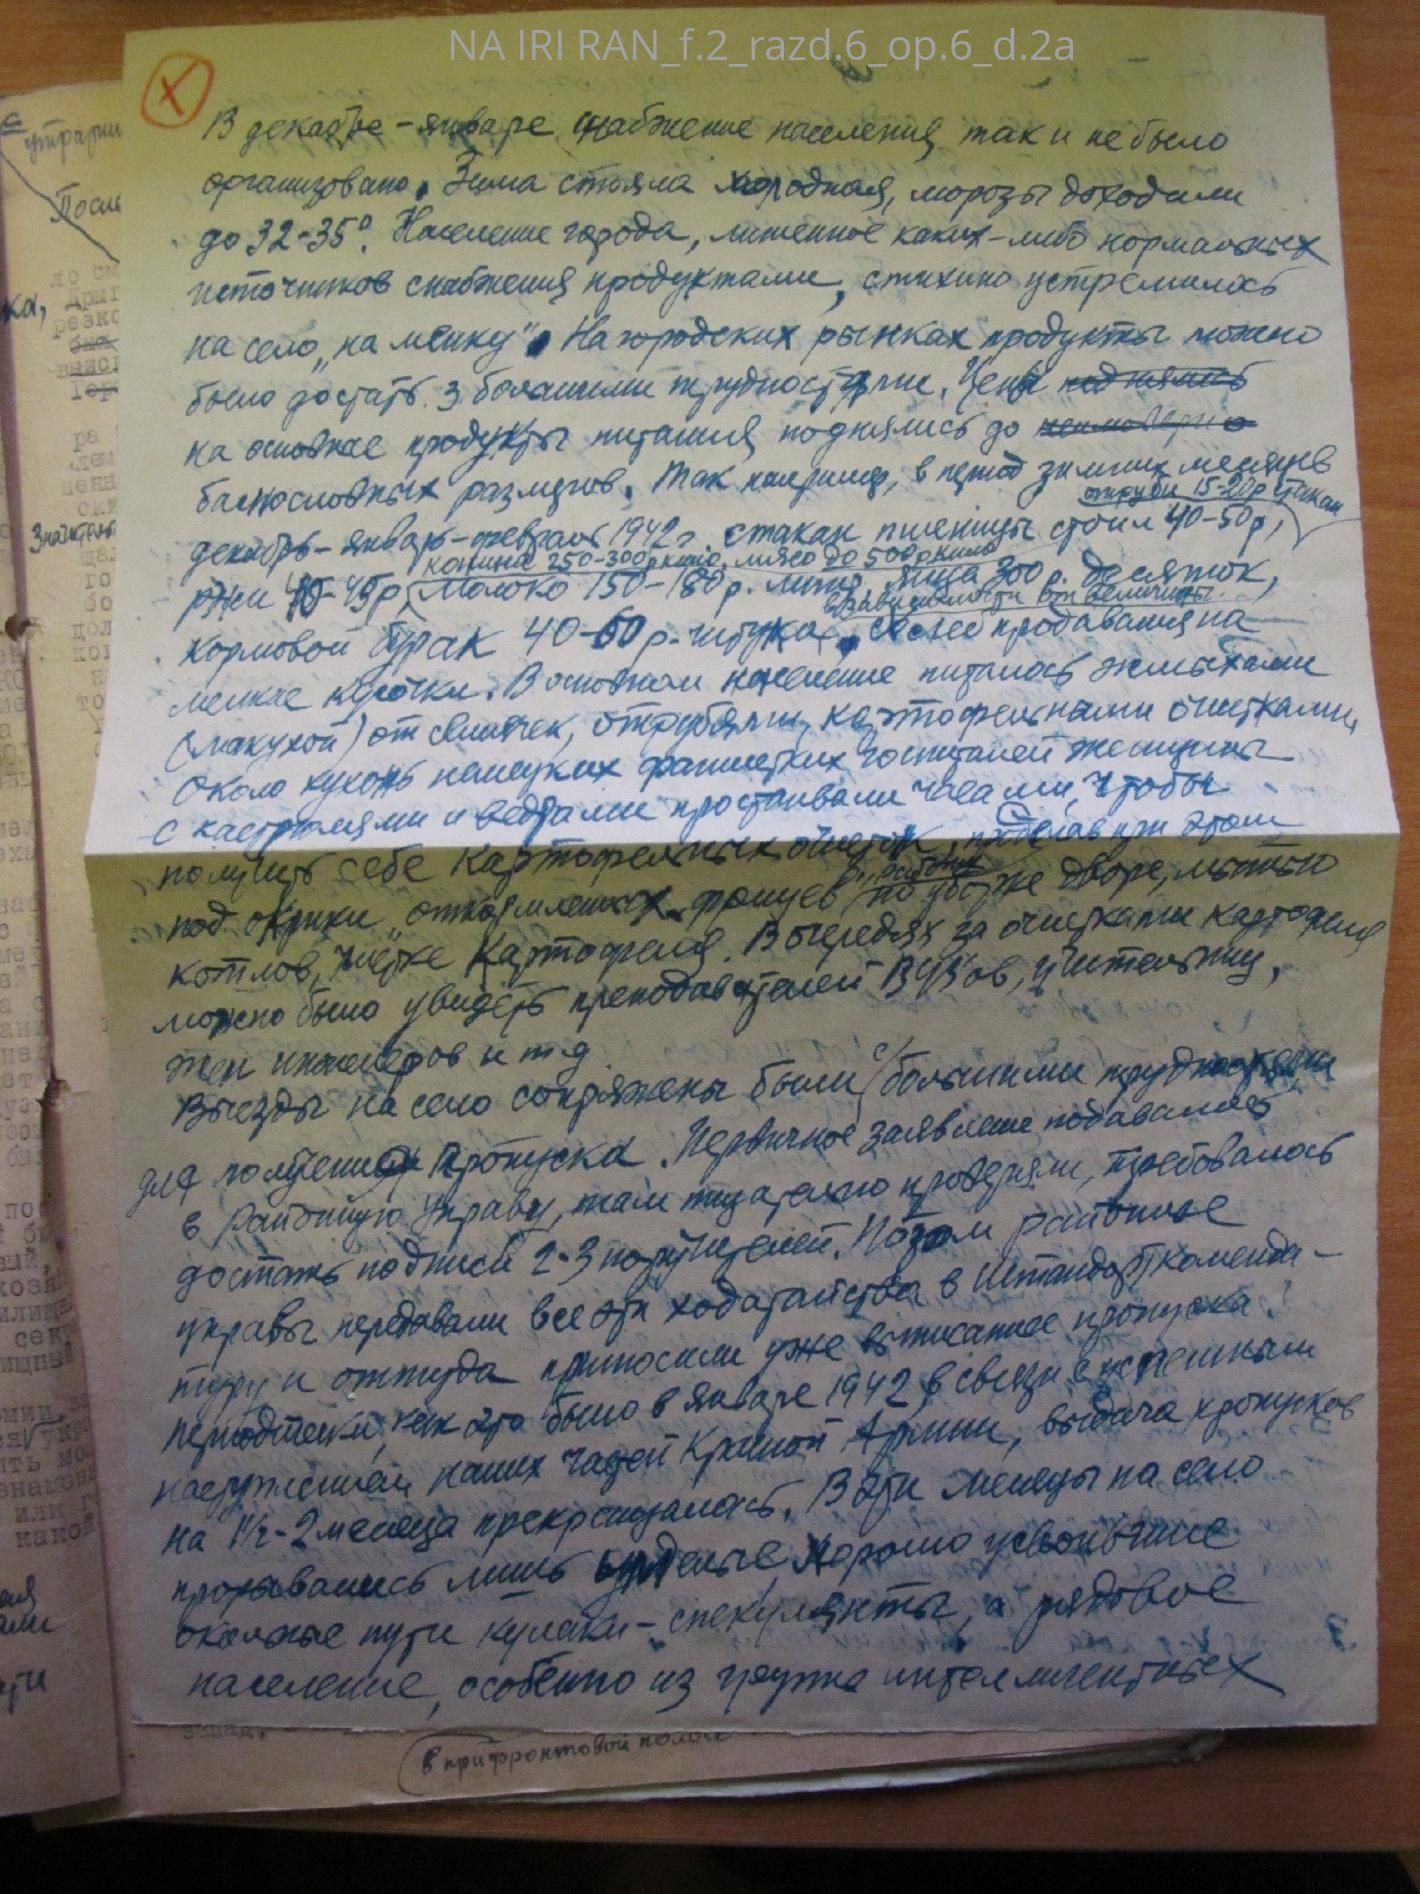 NA IRI RAN_f.2_razd.6_op.6_d.2a
В декабре-январе снабжение населения так и не было
организовано. Зима стояла холодная, морозы доходили
до 32-35°. Население города, лишенное каких-либо нормальных
источников снабжения продуктами, стихийно устремилось
на село „на менку". На городских рынках продукты можно
было достать з большими трудностями. Цены поднялись
на основные продукты питания поднялись до неимоверно
баснословных размеров. Так например, в период зимних месяцев
отруби 15-20р стакан
декабрь-январь-февраль 1942 г. стакан пшеницы стоил 40-50р,
конина 250-300р кило, мясо до 500р кило
ржи 40-45р, молоко 150-180р. литр, яйца 300 р. десяток,
в зависимости от величины.
кормовой бурак 40-60 р. штука, хлеб продавался на
мелкие кусочки. В основном население питалось жмыхами
(макухой) от семячек, отрубями, картофельными очистками.
Около кухонь немецких фашистких госпиталей женщины
с кастрюлями и ведрами простаивали часами, чтобы
получить себе картофельных очисток, при этом
под окрики „откормленных фрицев работая по уборке дворе, мытью
котлов, чистке картофеля. В очередях за очистками картофеля
можно было увидеть преподавателей ВУЗ'ов, учительниц,
жен инженеров и т д
Выезды на село сопряжены были с большими трудностями
для получения пропуска. Первичное заявление подавалось
в районную управу, там тщательно проверяли, требовалось
достать подписи 2-3 поручителей. Потом районные
управы передавали все эти ходатайства в Штандорткоменда-
туру и оттуда приносили уже выписанные пропуска.
Периодтически, как это было в январе 1942, в связи с успешным
наступлением наших частей Красной Армии, выдача пропусков
на 1½-2 месяца прекращалась. В эти месяцы на село
прорывались лишь хорошо усвоившие
окольные пути кулаки-спекулянты, а рядовое
население, особенно из интеллигентных
в прифронтовой полосе